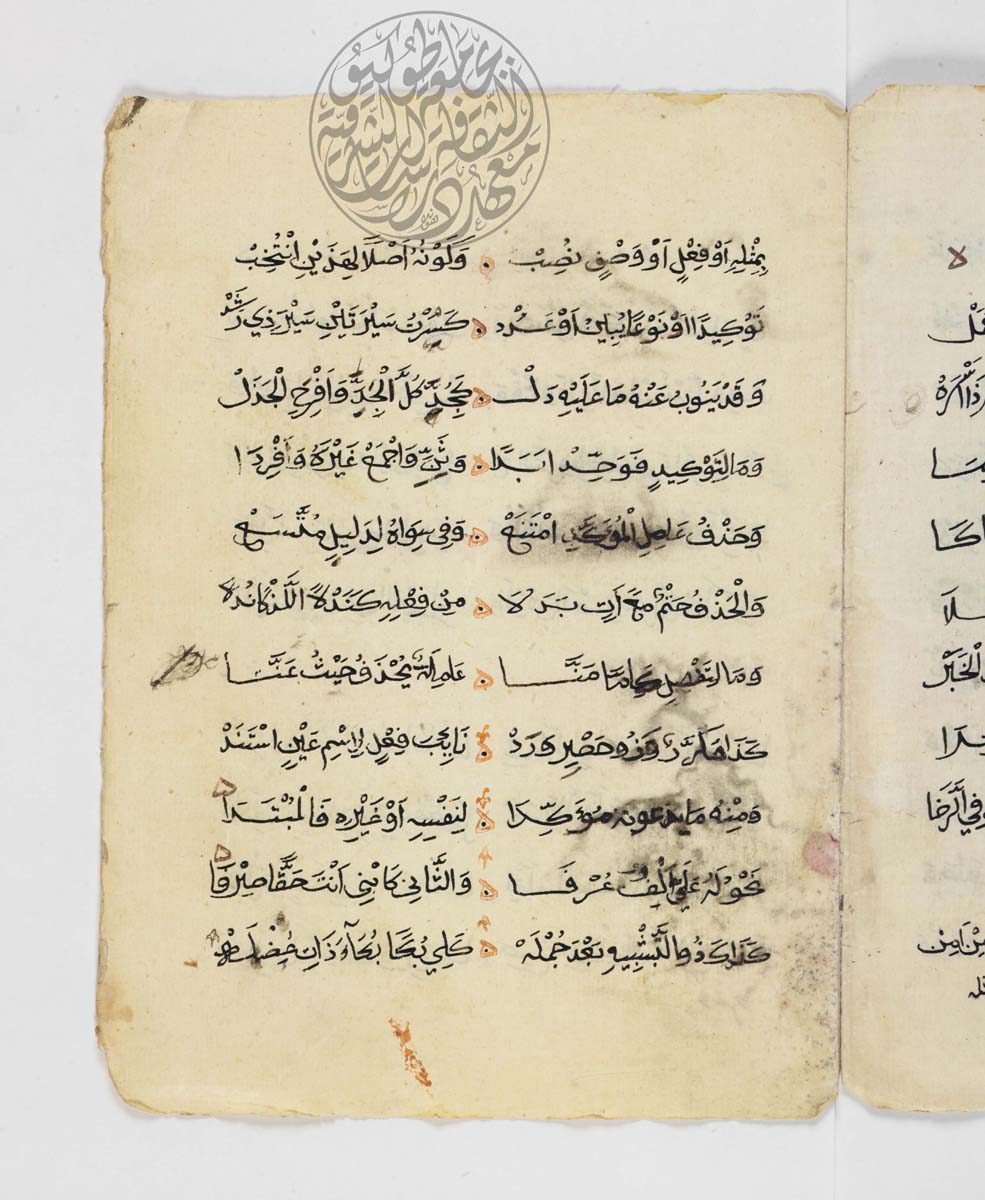 معهد الدراسات الثقافية الشرقية بجامعة طوكيو
بِمِثْلِهِ اَوْ فِعْلٍ اَوْ وَصْفٍ نُصِبْ وَكَوْنُهُ اَصْلًا لِهَذَيْنِ انْتُخِبْ
تَوْكِيدًا اوْ نَوْعًا يُبِينُ اَوْ عَدَدْ كَسِرْتُ سَيْرَتَيْنِ سَيْرَ ذِي رَشَدْ
وَقَدْ يَنُوبُ عَنْهُ مَا عَلَيْهِ دَلْ كَجِدَّ كُلَّ الْجِدِّ وَافْرَحِ الْجَذَلْ
وَمَا لِتَوْكِيدٍ فَوَحِّدْ ابَدًا وَثَنِّ وَاجْمَعْ غَيْرَهُ وَاَفْرِدَا
وَحَذْفُ عَامِلِ الْمُؤَكَّدِ امْتَنَعْ وَفِي سِوَاهُ لِدَلِيلٍ مُتَّسَعْ
وَالْحَذْفُ حَتْمٌ مَعَ اَتٍ بَدَلَا مِنْ فِعْلِهِ كَنَدْلًا اللَّذْ كَانْدُلَا
وَمَا لِتَفْصِلٍ كَامَّا مَنَّا عَامِلُهُ يُحْذَفُ حَيْثُ عَنَّا
كَذَا مُكَرَّرٌ وَذُو حَصْرٍ وَرَدْ نَايِبَ فِعْلٍ لِاسْمِ عَيْنٍ اسْتَنَدْ
وَمِنْهُ مَا يَدْعُونَهُ مُؤَكِّدَا لِنَفْسِهِ اَوْ غَيْرِهِ فَالْمُبْتَدَا
نَحْوُ لَهُ عَلَيَّ اَلْفٌ عُرْفَا وَالثَّانِي كَابْنِي اَنْتَ حَقًّا صِرْفَا
كَذَاكَ ذُو التَّشْبِيهِ بَعْدَ جُمْلَهْ كَلِي بُكًا بُكَآءَ ذَاتِ عُضْلَهْ